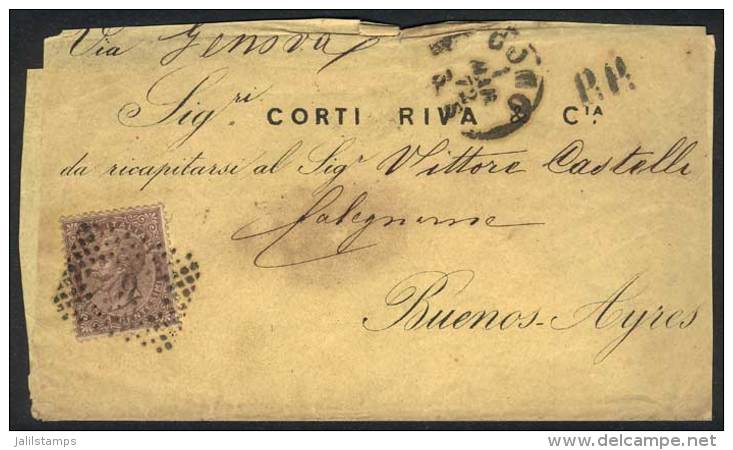 Via Genova
COMO
1
MAR
72
P.P.
Sig.ri CORTI RIVA & CIA.
da ricapitarsi al Sigr Vittore Castelli
Falegname
Buenos-Ayres
jalilstamps
delcampe.net